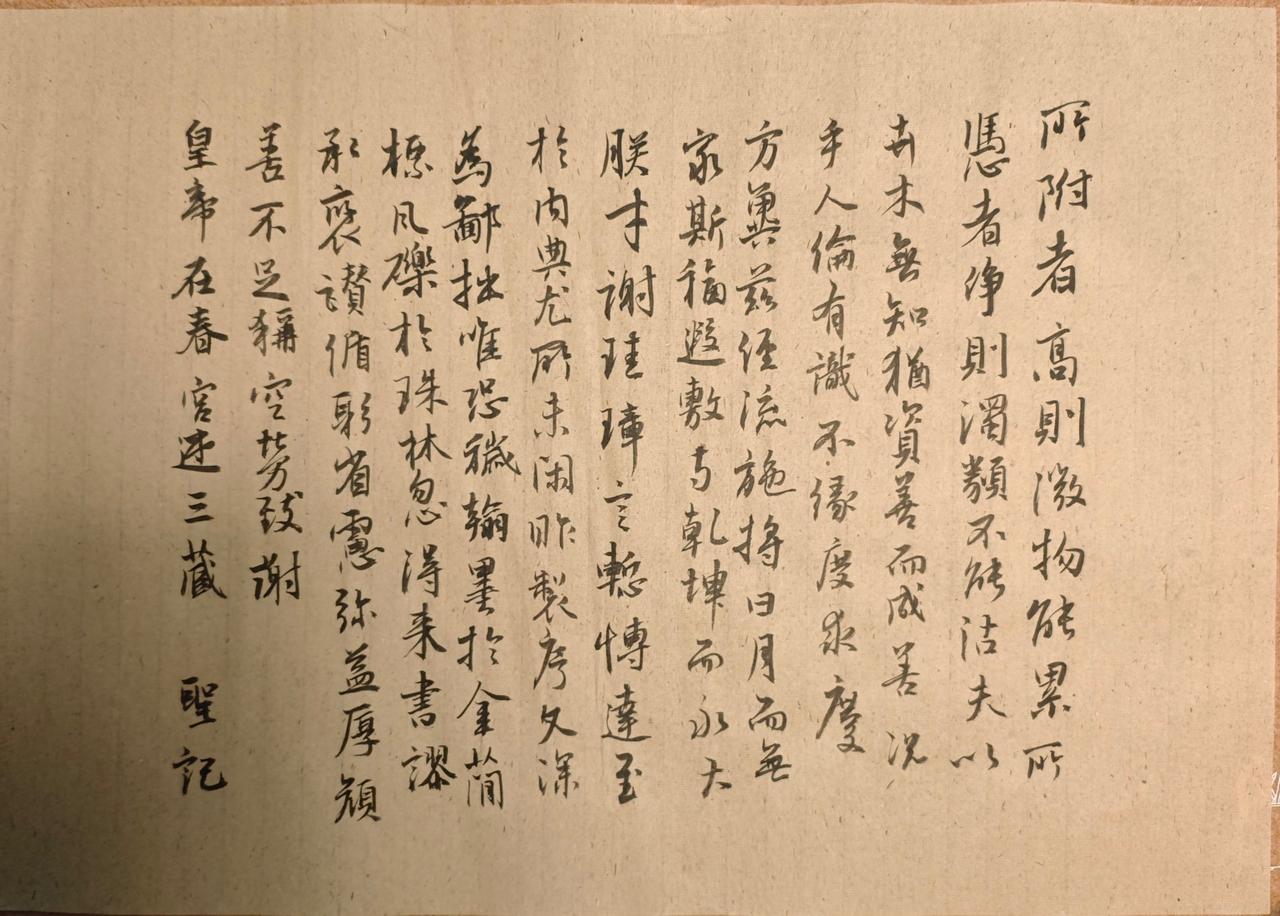 所附者高則微物能累所
憑者净則濁類不能沾夫以
卉木無知猶資善而成善況
乎人倫有識不緣慶求慶
方冀茲經流施將日月而無
窮斯福遐敷与乾坤而永大
朕才謝珪璋言慙博達至
於内典尤所未閑昨製序文深
為鄙拙唯恐穢翰墨於金簡
標瓦礫於珠林忽得来書謬
承褒讃循躬省慮弥益厚顔
善不足稱空勞致謝
皇帝在春宮述三藏 聖記